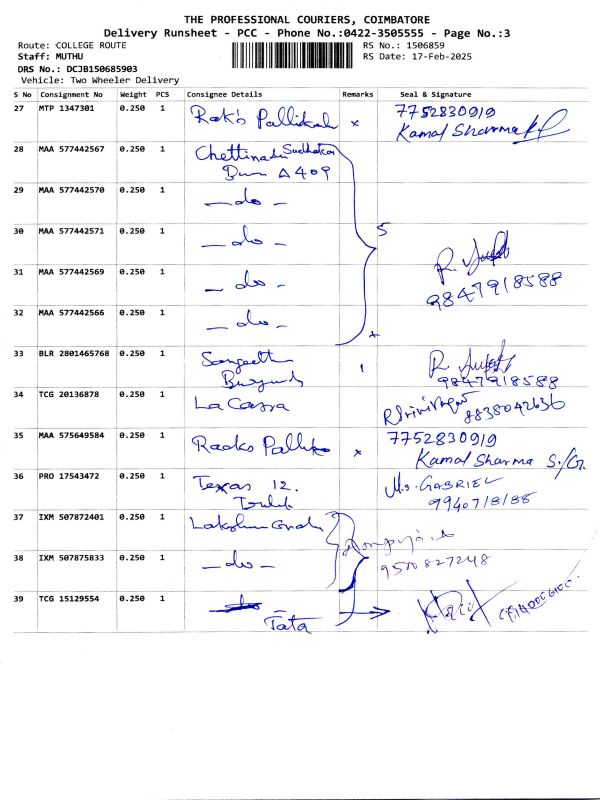 THE PROFESSIONAL COURIERS, COIMBATORE
Delivery Runsheet - PCC - Phone No.:0422-3505555 - Page No.:3
Route: COLLEGE ROUTE RS No.: 1506859
Staff: MUTHU RS Date: 17-Feb-2025
DRS No.: DCJB150685903
Vehicle: Two Wheeler Delivery
S No Consignment No Weight PCS Consignee Details Remarks Seal & Signature
27 MTP 1347301 0.250 1 x 7752830919
Kamal Sharma
28 MAA 577442567 0.250 1 Chettinadu Sudhakar
A 409
29 MAA 577442570 0.250 1 - do -
30 MAA 577442571 0.250 1 - do - 5
31 MAA 577442569 0.250 1 - do - 9847918588
32 MAA 577442566 0.250 1 - do -
33 BLR 2801465768 0.250 1 Sangeeth 1
9847918588
34 TCG 20136878 0.250 1 La Cassa 8838042636
35 MAA 575649584 0.250 1 x 7752830919
Kamal Sharma S./Gr.
36 PRO 17543472 0.250 1 Texas 12. Ms. GABRIEL
9940718188
37 IXM 507872401 0.250 1
38 IXM 507875833 0.250 1 - do - 9500827248
39 TCG 15129554 0.250 1 Tata